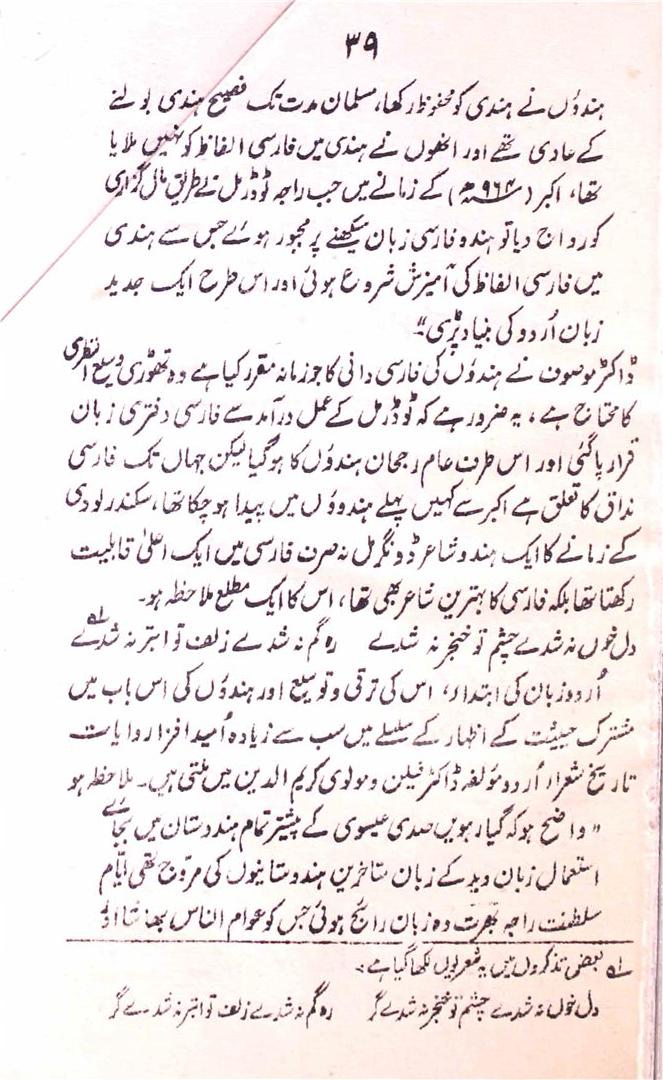 ۳۹
ہندوؤں نے ہندی کو محفوظ رکھا، مسلمان مدت تک فصیح ہندی بولنے
کے عادی تھے اور انھوں نے ہندی میں فارسی الفاظ کو نہیں ملایا
تھا، اکبر (۹۶۴ھ) کے زمانے میں جب راجہ ٹوڈرمل نے طریق مال گزاری
کو رواج دیا تو ہندو فارسی زبان سیکھنے پر مجبور ہوئے جس سے ہندی
میں فارسی الفاظ کی آمیزش شروع ہوئی اور اس طرح ایک جدید
زبان اُردو کی بنیاد پڑی۔"
ڈاکٹر موصوف نے ہندوؤں کی فارسی دانی کا جو زمانہ مقرر کیا ہے وہ تھوڑی وسیع النظری
کا محتاج ہے، یہ ضرور ہے کہ ٹوڈرمل کے عمل درآمد سے فارسی دفتری زبان
قرار پا گئی اور اس طرف عام رجحان ہندوؤں کا ہو گیا لیکن جہاں تک فارسی
مذاق کا تعلق ہے اکبر سے کہیں پہلے ہندوؤں میں پیدا ہو چکا تھا، سکندر لودی
کے زمانے کا ایک ہندو شاعر ڈونگرمل نہ صرف فارسی میں ایک اعلیٰ قابلیت
رکھتا تھا بلکہ فارسی کا بہترین شاعر بھی تھا، اس کا ایک مطلع ملاحظہ ہو۔
دل خوں نہ شدے چشم تو خنجر نہ شدے رہ گم نہ شدے زلف تو ابتر نہ شدے ؎۱
اُردو زبان کی ابتدا، اس کی ترقی و توسیع اور ہندوؤں کی اس باب میں
مشترک حیثیت کے اظہار کے سلسلے میں سب سے زیادہ اُمید افزا روایات
تاریخ شعرائے اُردو مؤلفہ ڈاکٹر فیلن و مولوی کریم الدین میں ملتی ہیں۔ ملاحظہ ہو
"واضح ہو کہ گیارہویں صدی عیسوی کے پیشتر تمام ہندوستان میں بجائے
استعمال زبان وید کے زبان متاخرین ہندوستانیوں کی مروّج تھی ایّام
سلطنت راجہ بھرت وہ زبان رائج ہوئی جس کو عوام الناس بھاشا اور
؎۱ بعض تذکروں میں یہ شعر یوں لکھا گیا ہے۔
دل خوں نہ شدے چشم تو خنجر نہ شدے گر رہ گم نہ شدے زلف تو ابتر نہ شدے گر